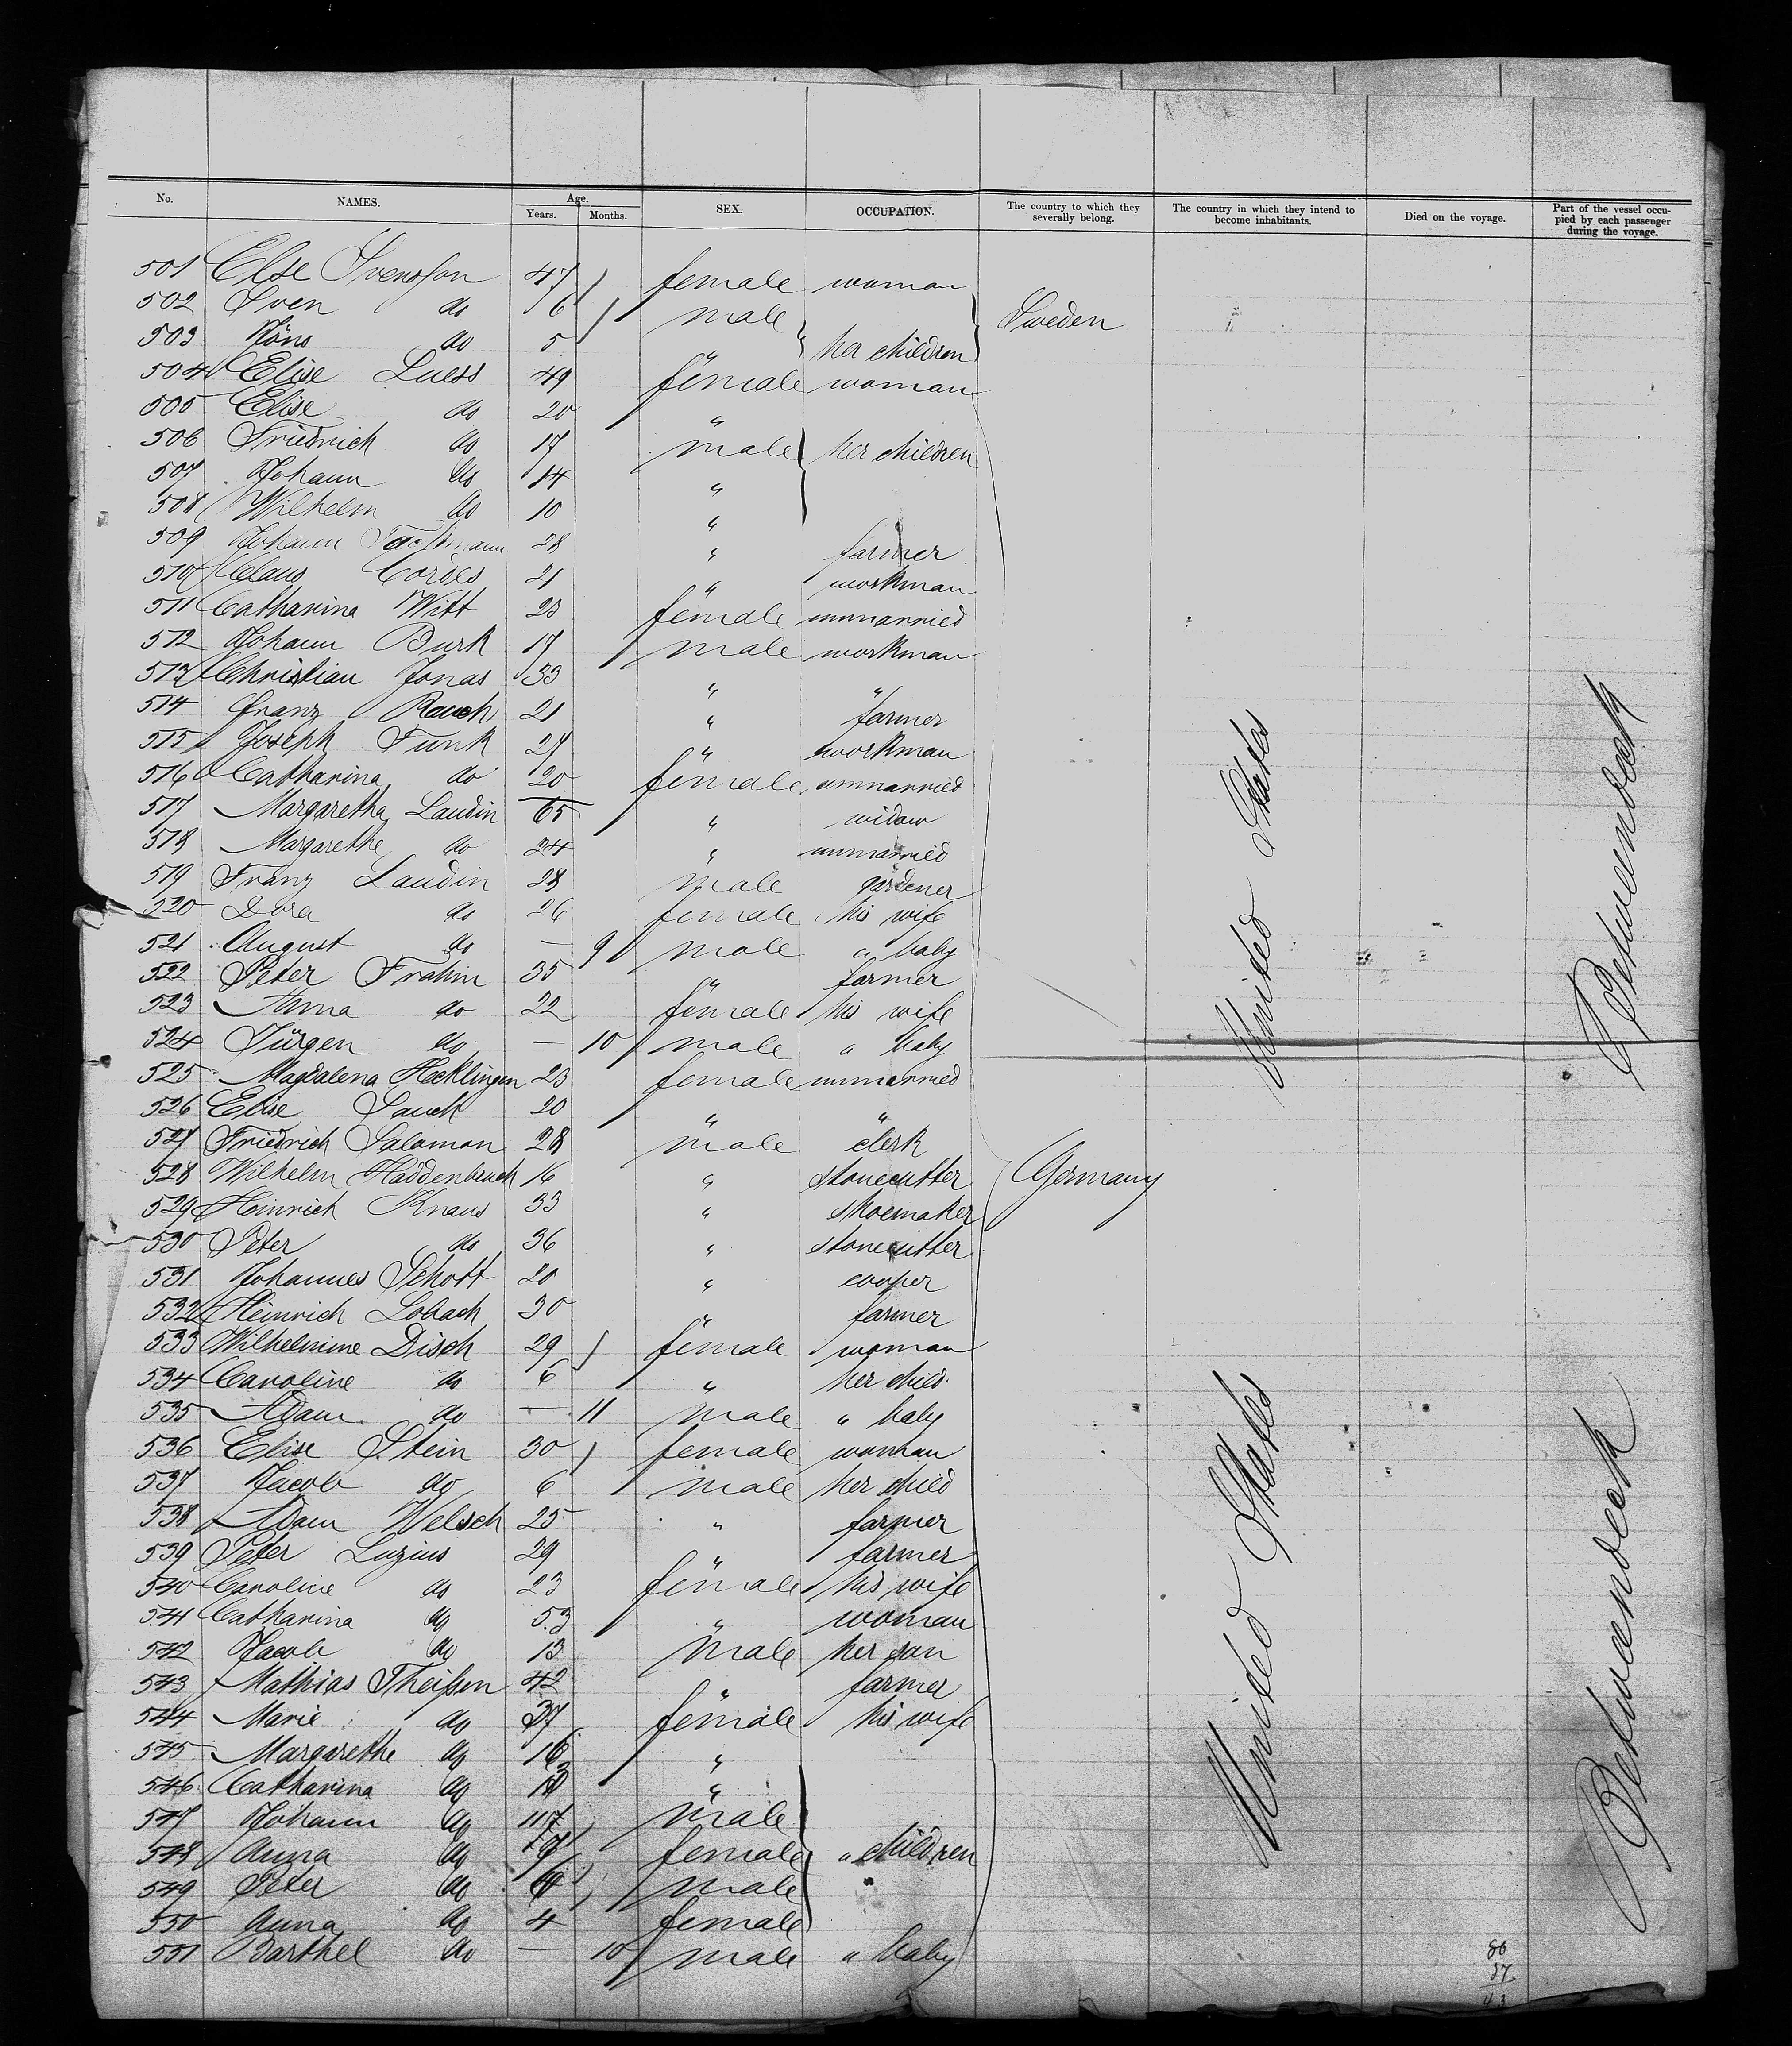 No. NAMES. Age. Years. Months. SEX. OCCUPATION. The country to which they severally belong. The country in which they intend to become inhabitants. Died on the voyage. Part of the vessel occupied by each passenger during the voyage.
501 Else Svensson 47 female woman
502 Sven do 6 male Sweden
503 Höns do 5 " her children
504 Elise Luess 49 female woman
505 Elise do 20 "
506 Friedrich do 17 male her children
507 Johann do 14 "
508 Wilhelm do 10 "
509 Johann 28 " farmer
510 Claus Cordes 21 " workman
511 Catharina Witt 23 female unmarried
512 Johann Burk 17 male workman
513 Christian Jonas 33 " "
514 Franz Rauch 21 " farmer
515 Joseph Funk 27 " workman
516 Catharina do 20 female unmarried
517 Margaretha Laudin 65 " widow
518 Margarethe do 24 " unmarried
519 Franz Laudin 28 male gardener
520 Dora do 26 female his wife
521 August do — 9 male " baby
522 Peter Frahm 35 " farmer
523 Anna do 22 female his wife
524 Jürgen do — 10 male " baby
525 Magdalena Hecklingen 23 female unmarried
526 Elise Sauck 20 " "
527 Friedrich Salomon 28 male clerk
528 Wilhelm Haddenbruch 16 " stonecutter Germany
529 Heinrich Knaus 33 " shoemaker
530 Peter do 36 " stonecutter
531 Johannes Schott 20 " cooper
532 Heinrich Lobach 30 " farmer
533 Wilhelmine Disch 29 female woman
534 Caroline do 6 " her child.
535 Adam do — 11 male " baby
536 Elise Stein 30 female woman
537 Jacob do 6 male her child
538 Adam Welsch 25 " farmer
539 Peter Luzius 29 " farmer
540 Caroline do 23 female his wife
541 Catharina do 53 " woman
542 Jacob do 13 male her son
543 Mathias Theissen 42 " farmer
544 Marie do 37 female his wife
545 Margarethe do 16 "
546 Catharina do "
547 Johann do male
548 Anna do female " children
549 Peter do male
550 Anna do 4 female
551 Barthel do — 10 male " baby
United States
United States
Betweendeck
Betweendeck
80
27
43